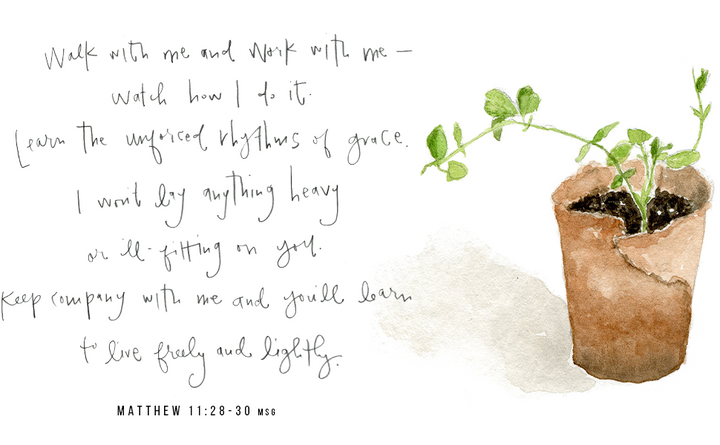 Walk with me and work with me —
watch how I do it.
Learn the unforced rhythms of grace.
I won't lay anything heavy
or ill-fitting on you.
Keep company with me and you'll learn
to live freely and lightly.
MATTHEW 11:28-30 MSG